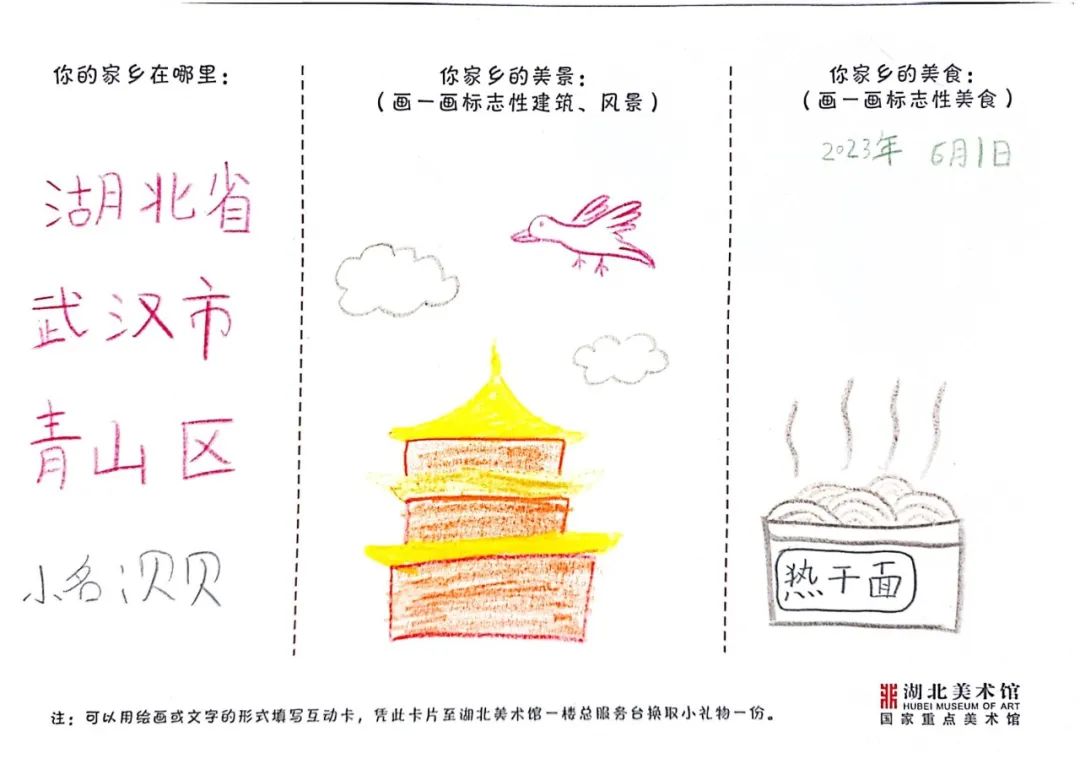 你的家乡在哪里：
湖北省
武汉市
青山区
小名：贝贝
你家乡的美景：
（画一画标志性建筑、风景）
你家乡的美食：
（画一画标志性美食）
2023年 6月1日
热干面
注：可以用绘画或文字的形式填写互动卡，凭此卡片至湖北美术馆一楼总服务台换取小礼物一份。
湖北美术馆
HUBEI MUSEUM OF ART
国家重点美术馆